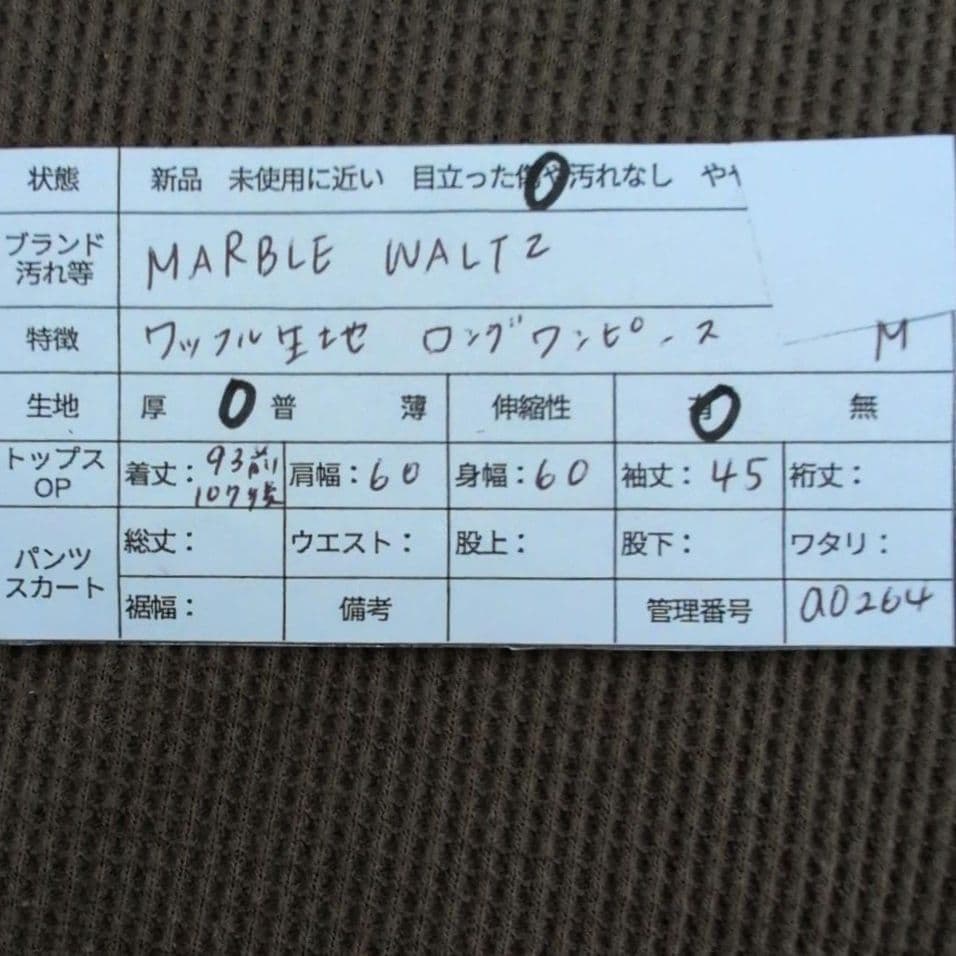 状態 新品 未使用に近い 目立った傷や汚れなし やや
ブランド
汚れ等 MARBLE WALTZ
特徴 ワッフル生地 ロングワンピース M
生地 厚 普 薄 伸縮性 有 無
トップス
OP 着丈: 93前 107後 肩幅:60 身幅:60 袖丈:45 裄丈:
パンツ
スカート 総丈: ウエスト: 股上: 股下: ワタリ:
裾幅: 備考 管理番号 a0264